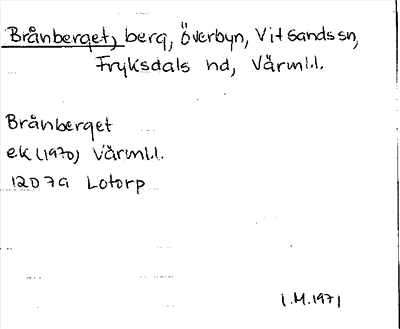 Brånberget, berg, Överbyn, Vitsands sn,
Fryksdals hd, Värml.
Brånberget
ek (1970) Värml.
12D 7a Lotorp
I.M. 1971